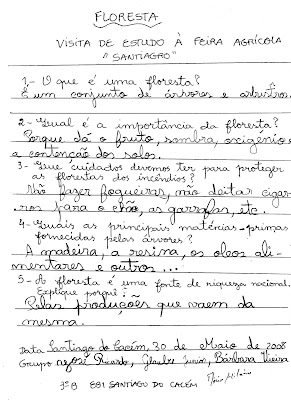 FLORESTA
VISITA DE ESTUDO À FEIRA AGRÍCOLA
"SANTIAGRO"
1- O que é uma floresta?
É um conjunto de árvores e arbustros.
2- Qual é a importância da floresta?
Porque dá o fruto, sombra, oxigénio e
a contenção dos solos.
3- Que cuidados devemos ter para proteger
as florestas dos incêndios?
Não fazer fogueiras, não deitar cigar-
ros para o chão, as garrafas, etc.
4- Quais as principais matérias-primas
fornecidas pelas árvores?
A madeira, a resina, os oleos ali-
mentares e outros...
5- A floresta é uma fonte de riqueza nacional.
Explique porquê:
Pelas produções que vaem da
mesma.
Data Santiago do Cacém, 30 de Maio de 2008
Grupo José Ricardo, Glauber Junior, Bárbara Vieira
7º B EB1 SANTIAGO DO CACÉM